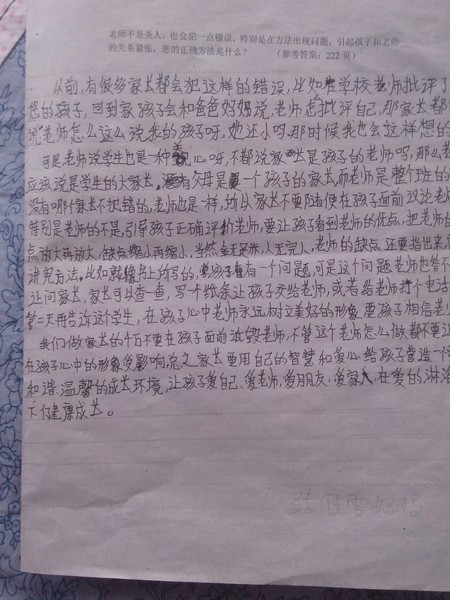 老师不是圣人，也会犯一点错误，特别是在方法出现问题，引起孩子和老师
的关系紧张。您的正确方法是什么？（参考答案：222页）
以前，有很多家长都会犯这样的错误，比如在学校老师批评了
您的孩子，回到家孩子会和爸爸妈妈说，老师批评自己，那家长都
说老师怎么这么说我的孩子呀，她还小呀，那时候我也会这样想的
可是老师说学生也是一种 心呀，不都说家长是孩子的老师吗，那么老
应该说是学生的大家长，父母是一个孩子的家长，而老师是整个班的
没有哪个家长不犯错的，老师也是一样，的从家长不要随便在孩子面前议论老师
特别是老师的不是，引导孩子正确评价老师，要让孩子看到老师的优点，把老师的
点放大再放大，缺点缩小再缩小，当然金无足赤人无完人，老师的缺点还要指出来
讲究方法，比如就像书上的写的，孩子看有一个问题，可是这个问题老师也答不
让问家长，家长可以查一查，写个纸条让孩子交给老师，或者给老师打个电话
第二天再告诉这个学生，在孩子心中老师永远树立美好的形象，要孩子相信老
我们做家长的千万不要在孩子面前诋毁老师，不管这个老师怎么做都不要让
在孩子心中的形象受影响，总之家长要用自己的智慧和爱心，给孩子营造一个
和谐、温馨的成长环境，让孩子爱自己、爱老师、爱朋友、爱家人，在爱的淋浴
下健康成长。